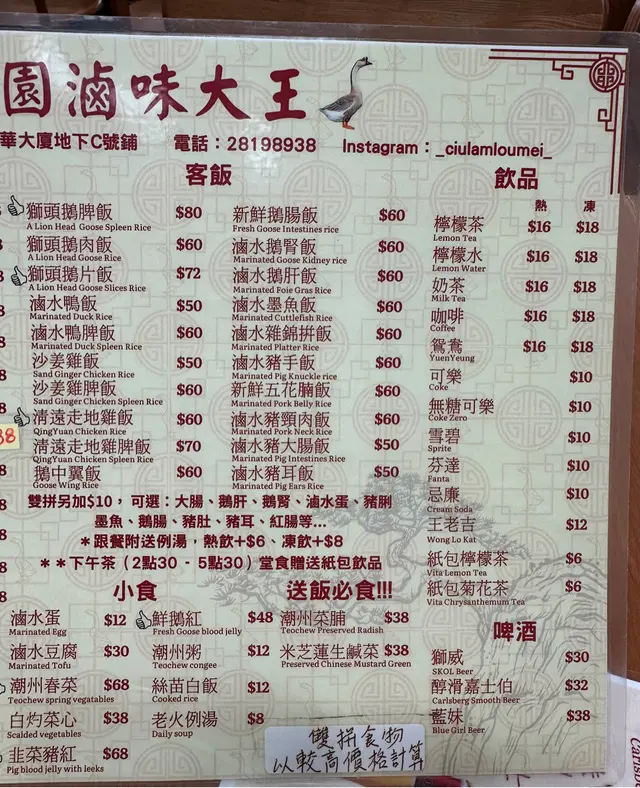 園滷味大王
華大廈地下C號鋪 電話：28198938 Instagram：_ciulamloumei_
客飯
獅頭鵝脾飯 $80
A Lion Head Goose Spleen Rice
獅頭鵝肉飯 $60
A Lion Head Goose Rice
獅頭鵝片飯 $72
A Lion Head Goose Slices Rice
滷水鴨飯 $50
Marinated Duck Rice
滷水鴨脾飯 $60
Marinated Duck Spleen Rice
沙姜雞飯 $50
Sand Ginger Chicken Rice
沙姜雞脾飯 $60
Sand Ginger Chicken Spleen Rice
清遠走地雞飯 $60
QingYuan Chicken Rice
清遠走地雞脾飯 $70
QingYuan Chicken Spleen Rice
鵝中翼飯 $60
Goose Wing Rice
新鮮鵝腸飯 $60
Fresh Goose Intestines rice
滷水鵝腎飯 $60
Marinated Goose Kidney rice
滷水鵝肝飯 $60
Marinated Foie Gras Rice
滷水墨魚飯 $60
Marinated Cuttlefish Rice
滷水雜錦拼飯 $60
Marinated Platter Rice
滷水豬手飯 $60
Marinated Pig Knuckle rice
新鮮五花腩飯 $60
Marinated Pork Belly Rice
滷水豬頸肉飯 $60
Marinated Pork Neck Rice
滷水豬大腸飯 $50
Marinated Pig Intestines Rice
滷水豬耳飯 $50
Marinated Pig Ears Rice
雙拼另加$10，可選：大腸、鵝肝、鵝腎、滷水蛋、豬脷
墨魚、鵝腸、豬肚、豬耳、紅腸等...
*跟餐附送例湯，熱飲+$6、凍飲+$8
**下午茶（2點30 - 5點30）堂食贈送紙包飲品
飲品
熱 凍
檸檬茶 $16 $18
Lemon Tea
檸檬水 $16 $18
Lemon Water
奶茶 $16 $18
Milk Tea
咖啡 $16 $18
Coffee
鴛鴦 $16 $18
YuenYeung
可樂 $10
Coke
無糖可樂 $10
Coke Zero
雪碧 $10
Sprite
芬達 $10
Fanta
忌廉 $10
Cream Soda
王老吉 $12
Wong Lo Kat
紙包檸檬茶 $6
Vita Lemon Tea
紙包菊花茶 $6
Vita Chrysanthemum Tea
小食
滷水蛋 $12
Marinated Egg
滷水豆腐 $30
Marinated Tofu
潮州春菜 $68
Teochew spring vegatables
白灼菜心 $38
Scalded vegetables
韭菜豬紅 $68
Pig blood jelly with leeks
鮮鵝紅 $48
Fresh Goose blood jelly
潮州粥 $12
Teochew congee
絲苗白飯 $12
Cooked rice
老火例湯 $8
Daily soup
送飯必食!!!
潮州菜脯 $38
Teochew Preserved Radish
米芝蓮生鹹菜 $38
Preserved Chinese Mustard Green
啤酒
獅威 $30
SKOL Beer
醇滑嘉士伯 $32
Carlsberg Smooth Beer
藍妹 $38
Blue Girl Beer
雙拼食物
以較高價格計算